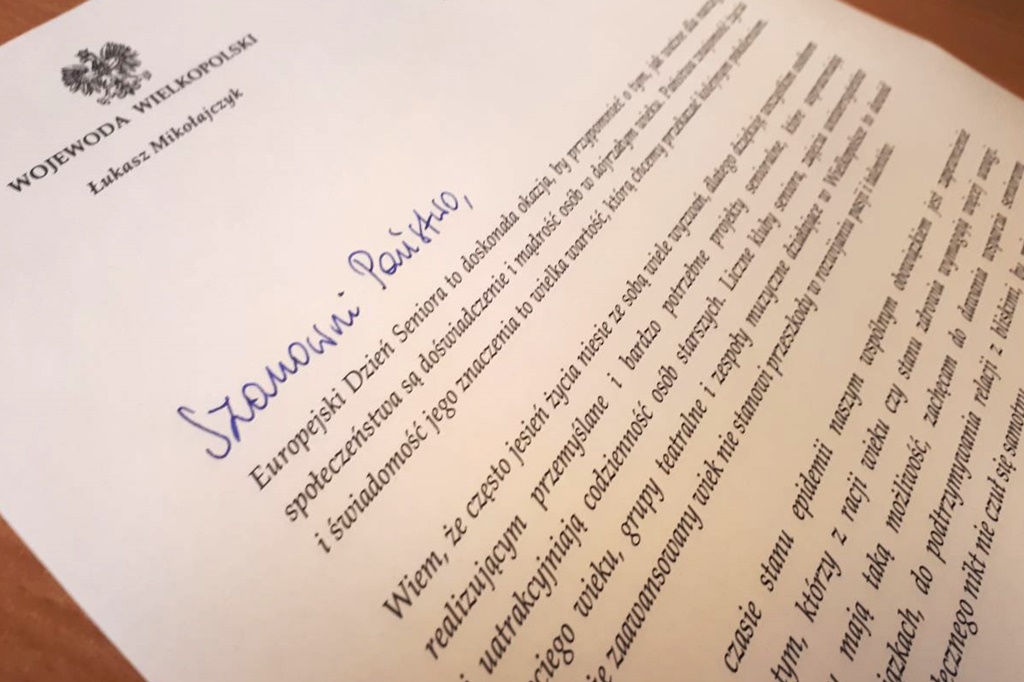 WOJEWODA WIELKOPOLSKI
Łukasz Mikołajczyk
Szanowni Państwo,
Europejski Dzień Seniora to doskonała okazja, by przypomnieć o tym, jak ważne dla naszego
społeczeństwa są doświadczenie i mądrość osób w dojrzałym wieku. Państwa znajomość życia
i świadomość jego znaczenia to wielka wartość, którą chcemy przekazać kolejnym pokoleniom.
Wiem, że często jesień życia niesie ze sobą wiele wyzwań, dlatego dziękuję wszystkim osobom
realizującym przemyślane i bardzo potrzebne projekty senioralne, które
uatrakcyjniają codzienność osób starszych. Liczne kluby seniora, zajęcia
wieku, grupy teatralne i zespoły muzyczne działające w Wielkopolsce to
zaawansowany wiek nie stanowi przeszkody w rozwijaniu pasji i talentów.
czasie stanu epidemii naszym wspólnym obowiązkiem jest zapewnienie
tym, którzy z racji wieku czy stanu zdrowia wymagają więcej uwagi.
mają taką możliwość, zachęcam do dawania wsparcia seniorom
do podtrzymywania relacji z bliskimi, by
nikt nie czuł się samotny